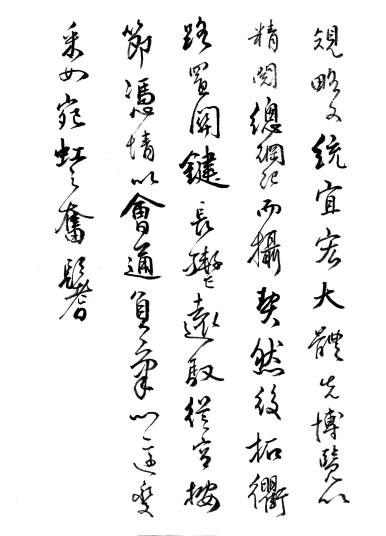 規略文統宜宏大體先博覽以
精閱總綱紀而攝契然後拓衢
路置關鍵長轡遠馭從容按
節憑情以會通負氣以適變
采如宛虹之奮鬐